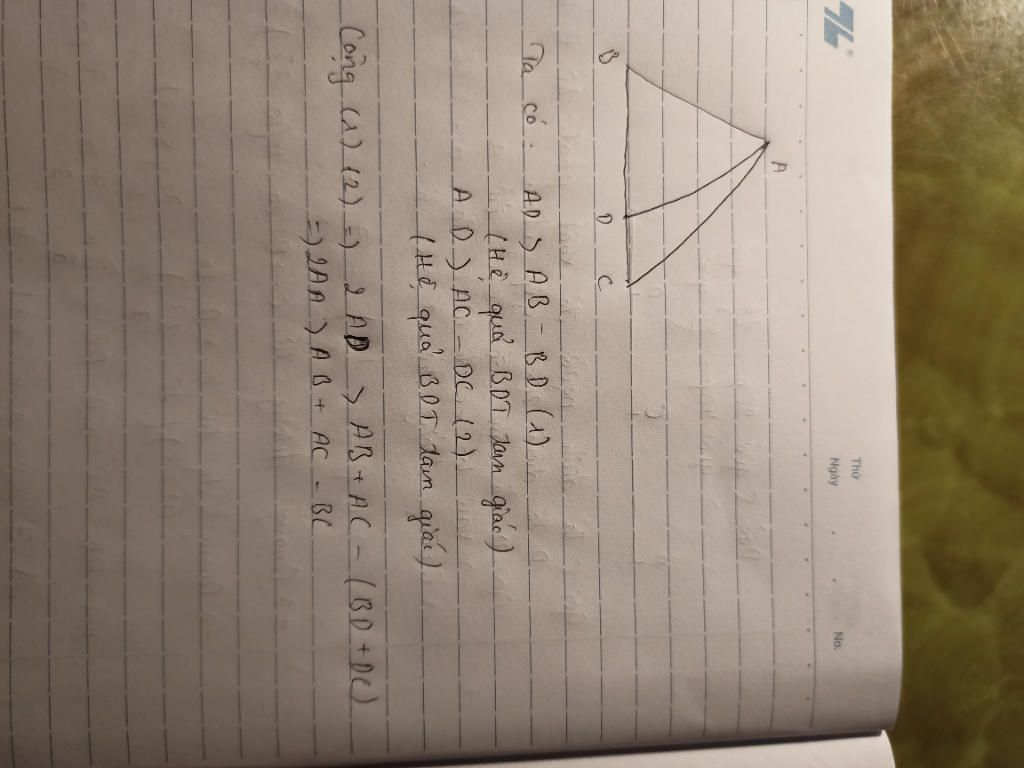 Thứ
Ngày
No.
A
B
D
C
Ta có: AD > AB - BD (1)
(Hệ quả BDT tam giác)
AD > AC - DC (2)
(Hệ quả BDT tam giác)
Cộng (1) (2) => 2 AD > AB + AC - (BD + DC)
=> 2AA > AB + AC - BC